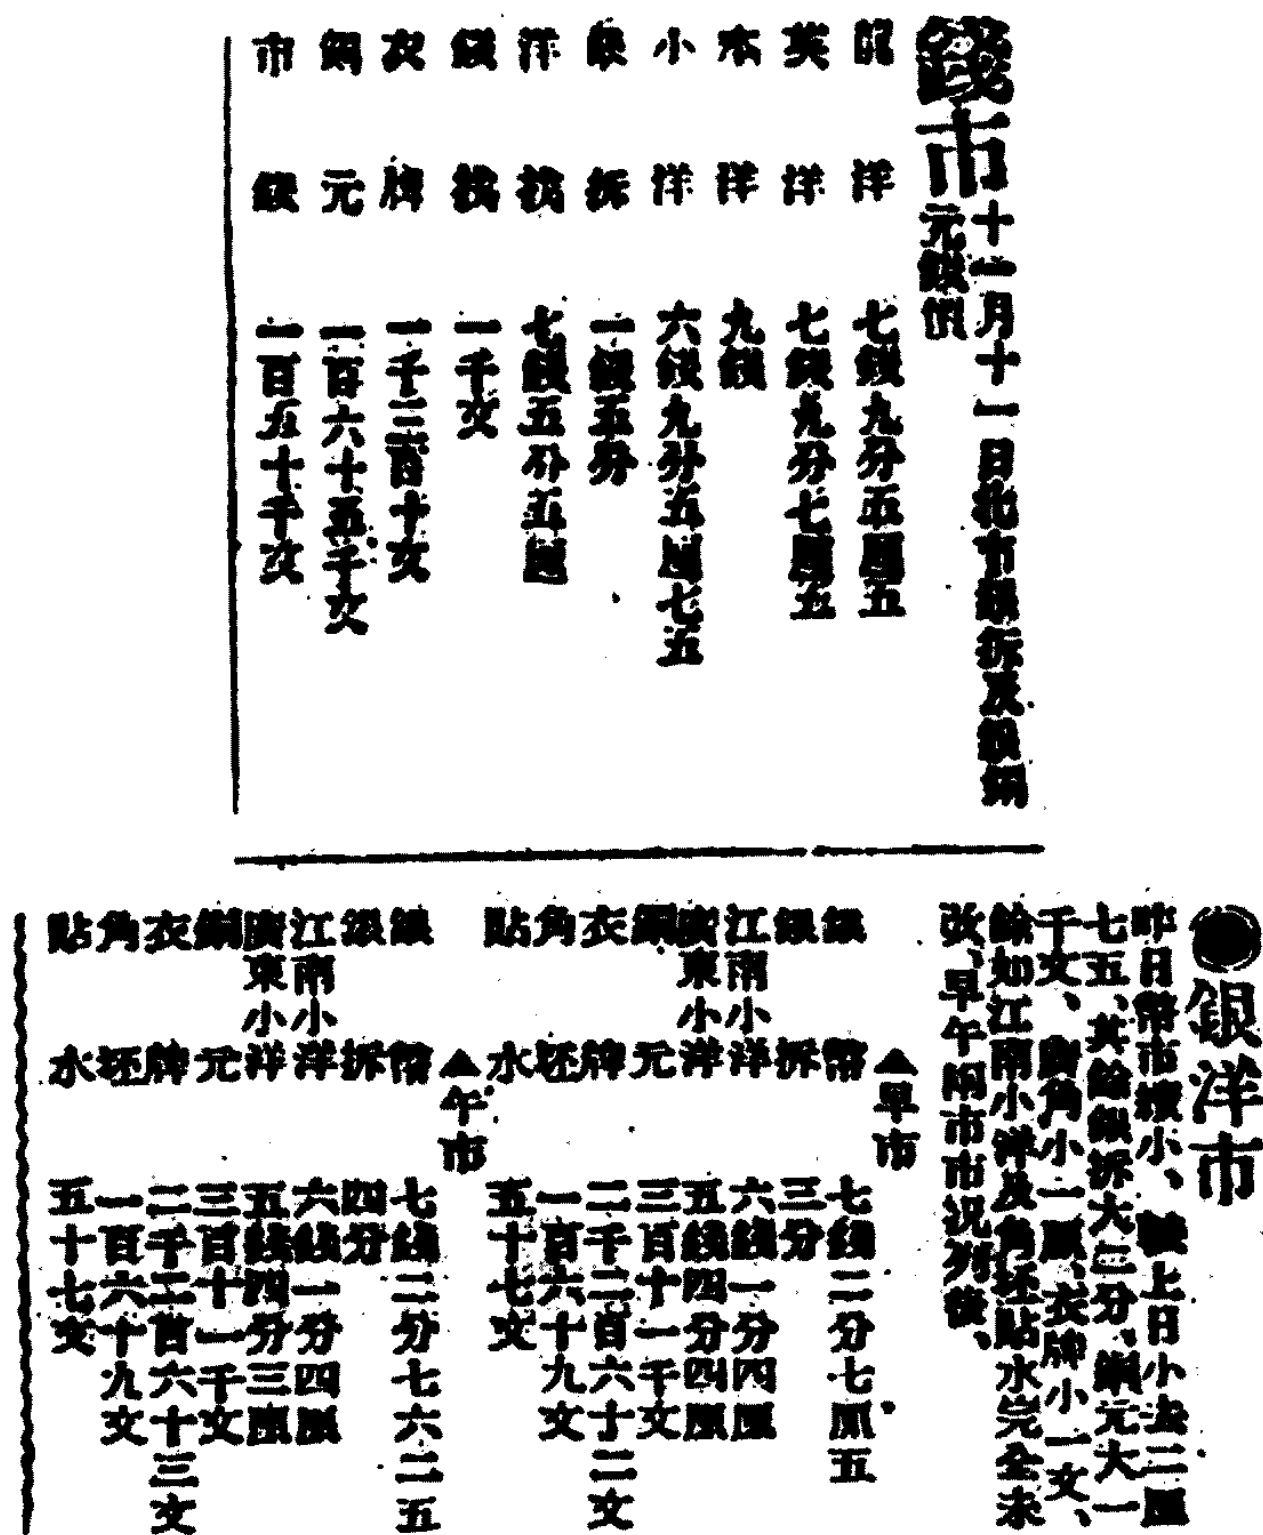 錢市
十一月十一日北市銀拆及銀銅
元錢價
龍洋 七錢九分五厘五
英洋 七錢九分七厘五
本洋 九錢
小洋 六錢九分五厘七五
銀拆 一錢五分
洋找 七錢五分五厘
錢找 一千文
衣牌 一千三百十文
銅元 一百六十五千文
市錢 一百五十千文
銀洋市
昨日幣市續小、較上日小去二厘
七五、其餘銀拆大三分、銅元大一
千文、廣角小一厘、衣牌小一文、
餘如江南小洋及角坯貼水完全未
改、早午兩市市况列後、
▲早市
銀幣 七錢二分七厘五
銀拆 三分
江南小洋 六錢一分四厘
廣東小洋 五錢四分四厘
銅元 三百十一千文
衣牌 二千二百六十二文
角坯 一百六十九文
貼水 五十七文
▲午市
銀幣 七錢二分七六二五
銀拆 四分
江南小洋 六錢一分四厘
廣東小洋 五錢四分三厘
銅元 三百十一千文
衣牌 二千二百六十三文
角坯 一百六十九文
貼水 五十七文